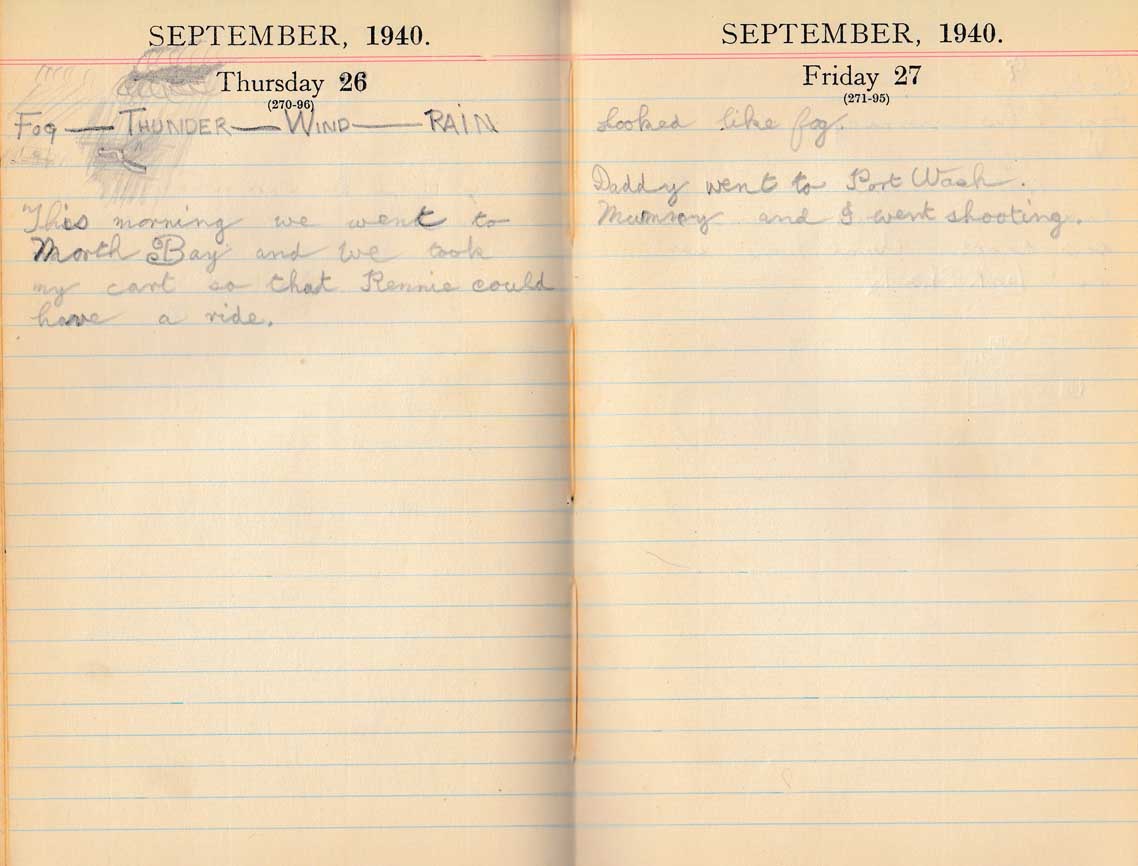 SEPTEMBER, 1940.
Thursday 26
(270-96)
Fog — THUNDER — WIND — RAIN
This morning we went to
North Bay and we took
my cart so that Rennie could
have a ride.
SEPTEMBER, 1940.
Friday 27
(271-95)
Looked like fog.
Daddy went to Port Wash.
Mumsey and I went shooting.